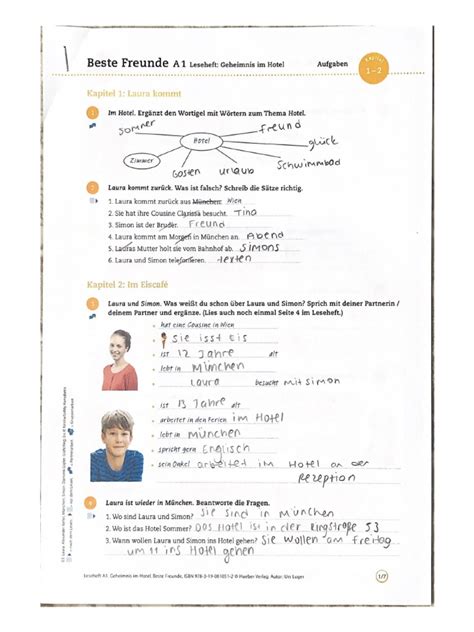 Beste Freunde A1 Leseheft: Geheimnis im Hotel Aufgaben
1–2
Kapitel 1: Laura kommt
1 Im Hotel. Ergänzt den Wortigel mit Wörtern zum Thema Hotel.
sommer
Freund
Hotel
glück
Zimmer
Schwimmbad
Gosten
urlaub
2 Laura kommt zurück. Was ist falsch? Schreib die Sätze richtig.
1. Laura kommt zurück aus München. Wien
2. Sie hat ihre Cousine Clarissa besucht. Tina
3. Simon ist der Bruder. Freund
4. Laura kommt am Morgen in München an. Abend
5. Lauras Mutter holt sie vom Bahnhof ab. Simons
6. Laura und Simon telefonieren. texten
Kapitel 2: Im Eiscafé
3 Laura und Simon. Was weißt du schon über Laura und Simon? Sprich mit deiner Partnerin /
deinem Partner und ergänze. (Lies auch noch einmal Seite 4 im Leseheft.)
hat eine Cousine in Wien
Sie isst Eis
ist 12 Jahre alt
lebt in München
Laura besucht mit Simon
ist 13 Jahre alt
arbeitet in den Ferien im Hotel
lebt in München
spricht gern Englisch
sein Onkel arbeitet im Hotel an der
Rezeption
4 Laura ist wieder in München. Beantworte die Fragen.
1. Wo sind Laura und Simon? Sie sind in München
2. Wo ist das Hotel Sommer? Das Hotel ist in der Ringstraße 53
3. Wann wollen Laura und Simon ins Hotel gehen? Sie wollen am freitag
um 11 ins Hotel gehen
Leseheft A1: Geheimnis im Hotel, Beste Freunde, ISBN 978-3-19-081051-2 © Hueber Verlag
1/7